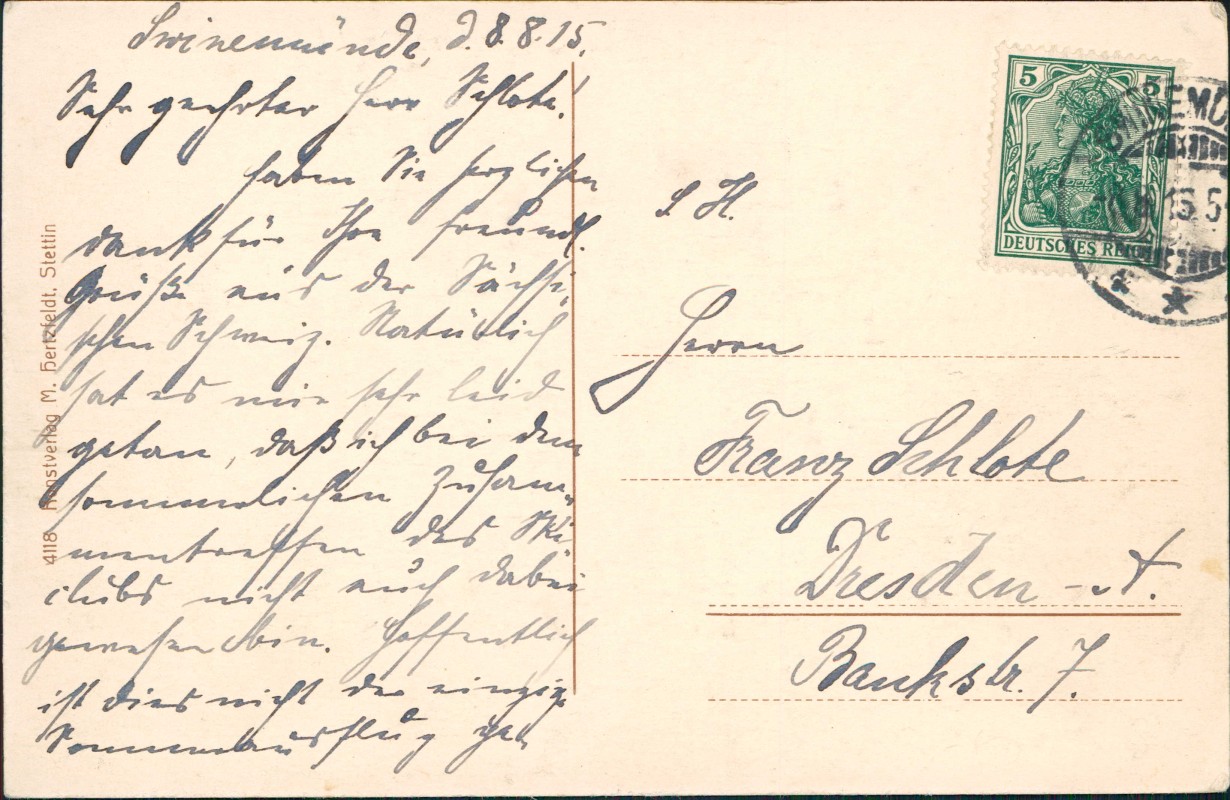 Swinemünde, d. 8.8.15.
Sehr geehrter Herr Schlote!
haben Sie herzlichen
Dank für Ihre freundl.
Grüße aus der Sächsi-
schen Schweiz. Natürlich
hat es mir sehr leid
getan, daß ich bei dem
sommerlichen Zusam-
mentreffen des Ski-
clubs nicht auch dabei
gewesen bin. Hoffentlich
ist dies nicht der einzige
Sommerausflug ge-
4118 Kunstverlag M. Hertzfeldt, Stettin
S. H.
5 5
DEUTSCHES REICH
Herrn
Franz Schlote
Dresden-A.
Bankstr. 7.